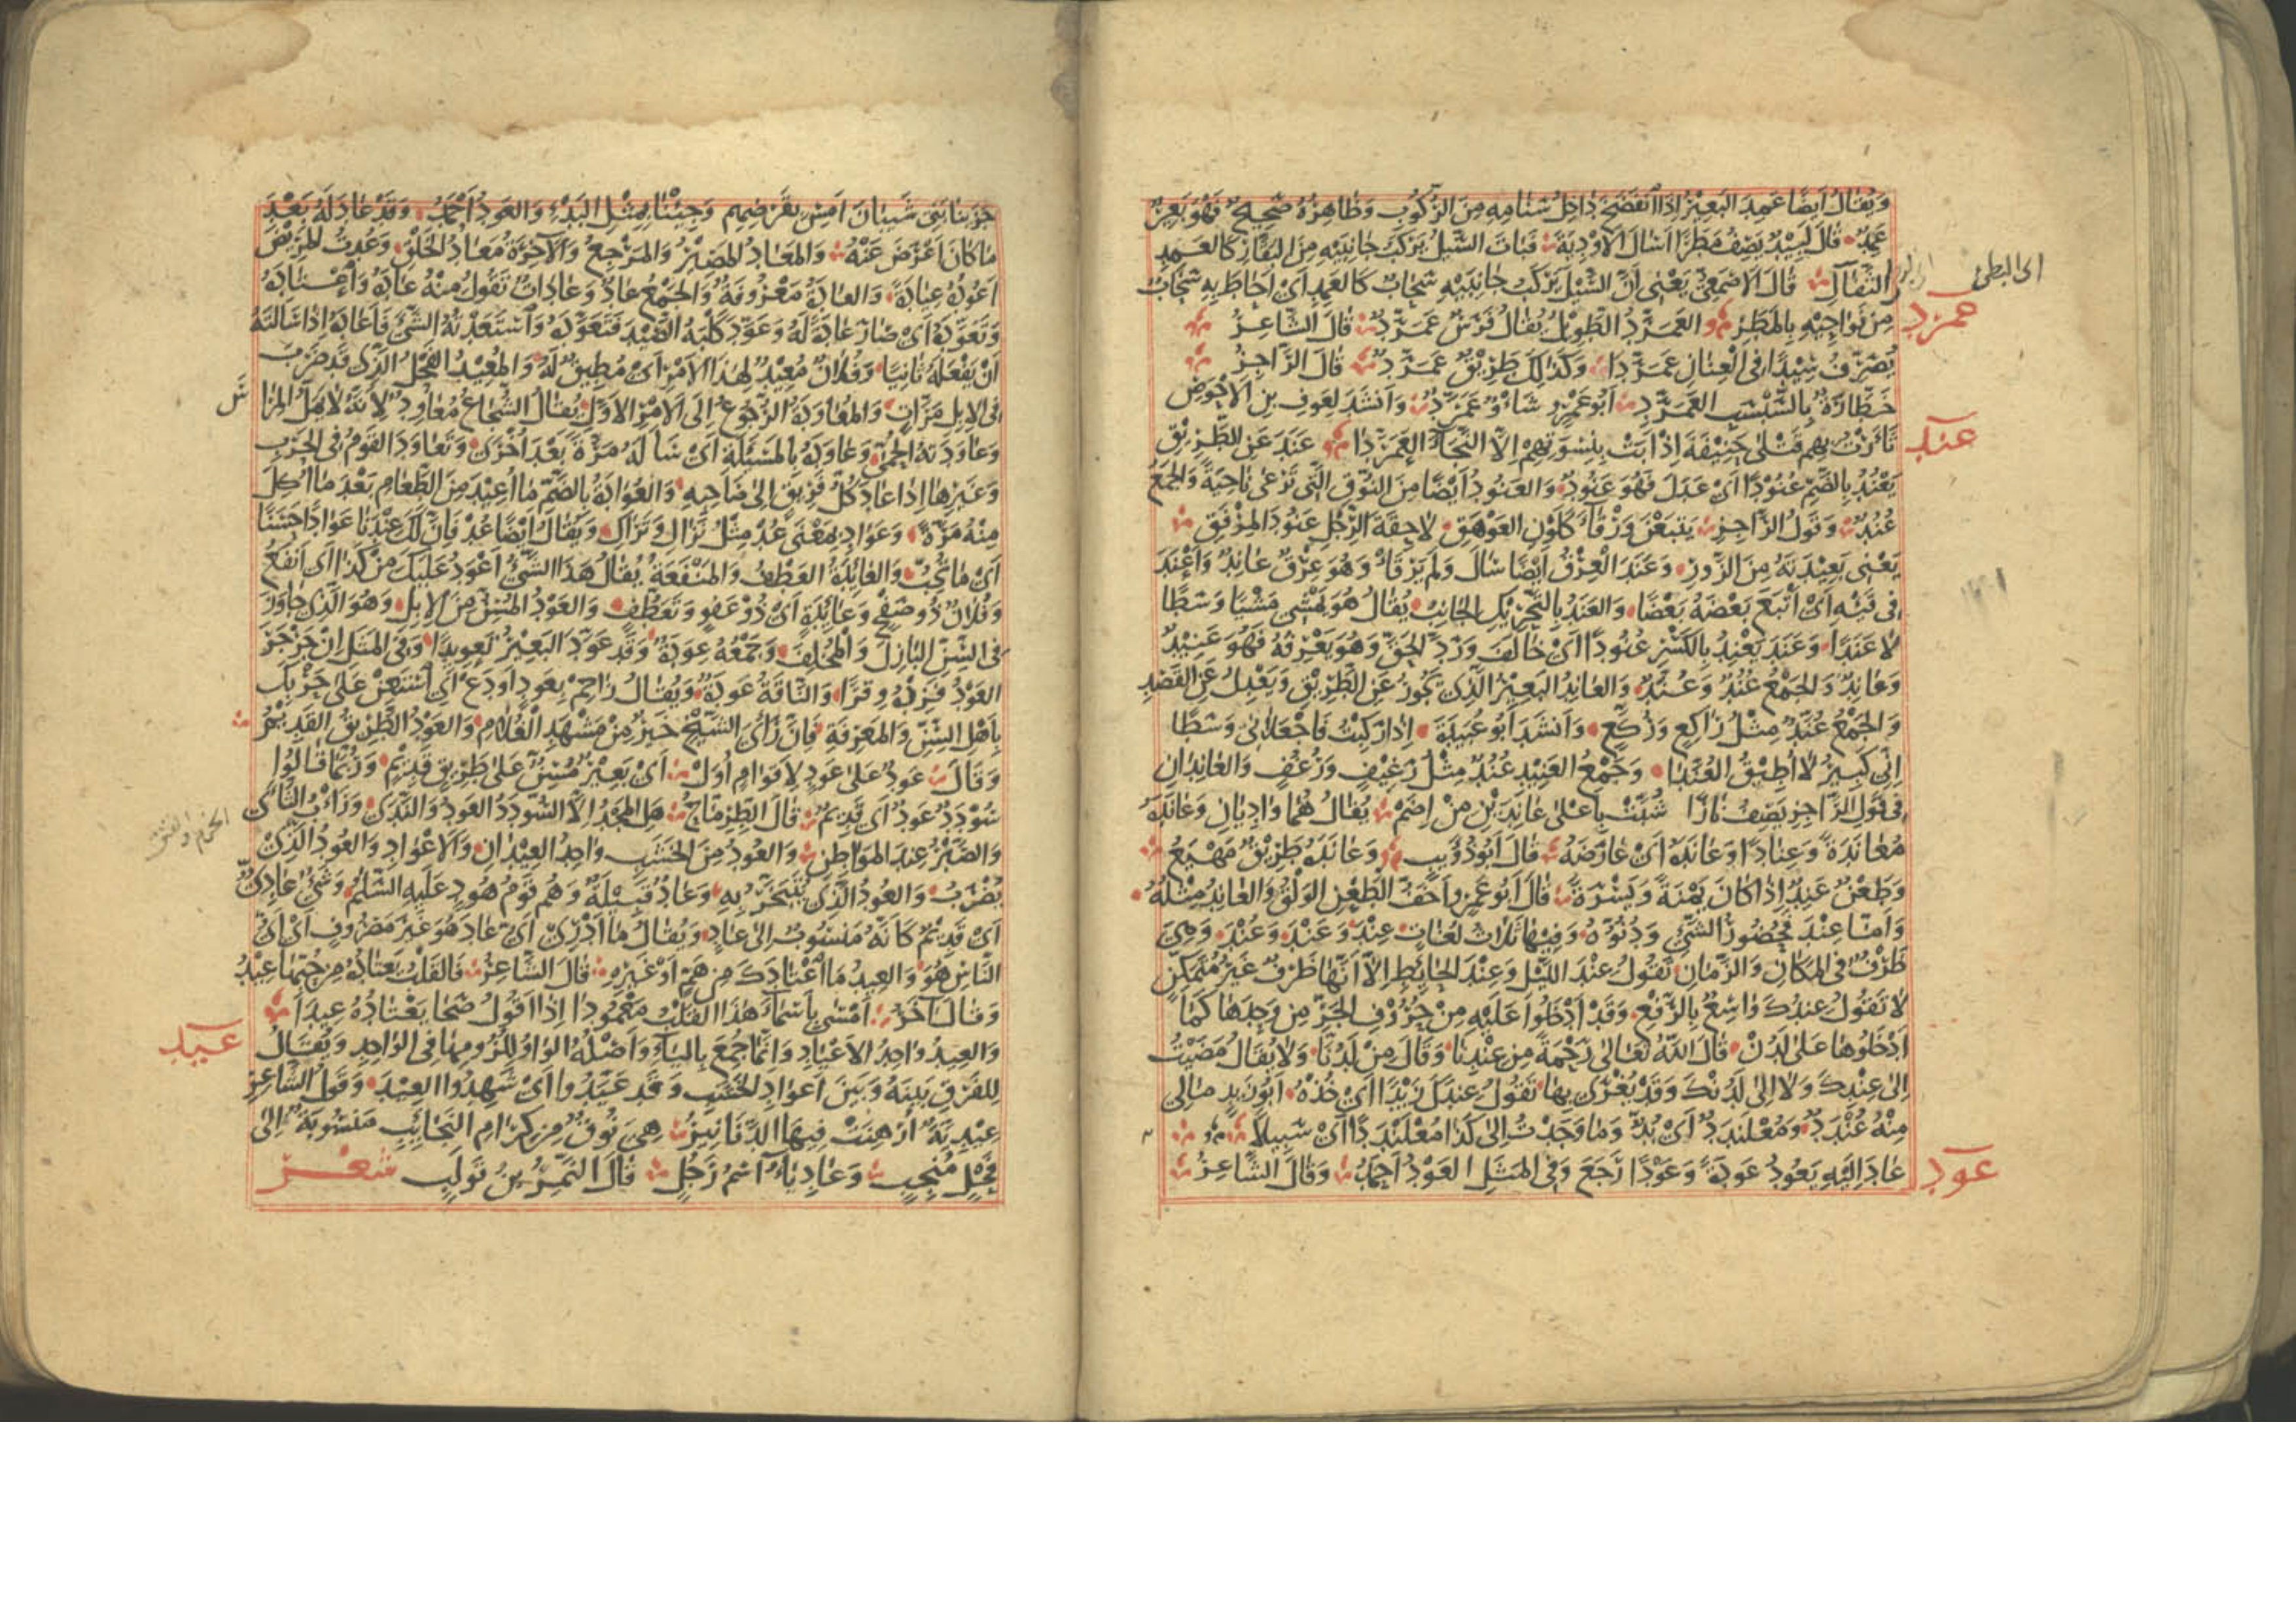 وَيُقَالُ اَيضًا عَمِدَ البَعِيْرُ اِذَا انْفَضَخَ دَاخِلُ سَنَامِهِ مِنَ الرُّكُوْبِ وَظَاهِرُهُ صَحِيْحٌ فَهُوَ بَعِيْرٌ
عَمِدٌ قَالَ لَبِيْدٌ يَصِفُ مَطَرًا اَسَالَ الاَوْدِيَةَ فَبَاتَ السَّيْلُ يَرْكَبُ جَانِبَيْهِ مِنَ البَقَّارِ كَالعَمِدِ
الثَّقَالِ قَالَ الاَصْمَعِيُّ يَعْنِى اَنَّ السَّيْلَ يَرْكَبُ جَانِبَيْهِ سَحَابٌ كَالعَمِدِ اَىْ اَحَاطَ بِهِ سَحَابٌ
اى البطئ
مِنْ نَوَاحِيْهِ بِالمَطَرِ العَمَرَّدُ الطَّوِيْلُ يُقَالُ فَرَسٌ عَمَرَّدٌ قَالَ الشَّاعِرُ
عمرد
يُصَرِّفُ سِيْدًا فِى الْعِنَانِ عَمَرَّدَا وَكَذٰلِكَ طَرِيْقٌ عَمَرَّدٌ قَالَ الرَّاجِزُ
خَطَّارَةٌ بِالسَّبْسَبِ العَمَرَّدِ اَبُو عَمْرٍو شَاْوٌ عَمَرَّدٌ وَاَنشَدَ لِعَوفِ بنِ الاَحْوَصِ
ثَاَرْتُ بِهِم قَتْلٰى حَنِيْفَةَ اِذْ اَبَتْ بِنِسْوَتِهِمْ اِلاَّ النَّجَاءَ العَمَرَّدَا عَنَدَ عَنِ الطَّرِيْقِ
عند
يَعْنُدُ بِالضَّمِّ عُنُوْدًا اَىْ عَدَلَ فَهُوَ عَنُوْدٌ وَالعَنُوْدُ اَيْضًا مِنَ النُّوْقِ الَّتِى تَرْعٰى نَاحِيَةً وَالجَمْعُ
عُنُدٌ وَقَولُ الرَّاجِزِ يَتْبَعْنَ وَرْقَاءَ كَلَوْنِ العَوْهَقِ لاَحِقَةَ الرِّجْلِ عَنُوْدَ المِرْفَقِ
يَعْنِى بَعِيْدَتَهُ مِنَ الزَّوْرِ وَعَنَدَ الْعِرْقُ اَيْضًا سَالَ وَلَمْ يَرْقَاْ وَهُوَ عِرْقٌ عَانِدٌ وَاَعْنَدَ
فِى قَيْئِهِ اَىْ اَتْبَعَ بَعْضَهُ بَعْضًا وَالعَنَدُ بِالتَّحْرِيْكِ الجَانِبُ يُقَالُ هُوَ يَمْشِى مَشْيًا وَسَطًا
لاَ عَنَدًا وَعَنَدَ يَعْنِدُ بِالكَسْرِ عُنُوْدًا اَىْ خَالَفَ وَرَدَّ الحَقَّ وَهُوَ يَعْرِفُهُ فَهُوَ عَنِيْدٌ
وَعَانِدٌ وَالجَمْعُ عُنُدٌ وَعُنَّدٌ وَالعَانِدُ البَعِيْرُ الَّذِى يَجُوْرُ عَنِ الطَّرِيْقِ وَيَعْدِلُ عَنِ القَصْدِ
وَالجَمْعُ عُنَّدٌ مِثْلُ رَاكِعٍ وَرُكَّعٍ وَاَنشَدَ اَبُو عُبَيْدَةَ اِذَا رَكِبْتُ فَاجْعَلاَنِى وَسَطًا
اِنِّى كَبِيْرٌ لاَ اُطِيْقُ العُنَّدَا وَجَمْعُ العَنِيْدِ عُنُدٌ مِثْلُ رَغِيْفٍ وَرُغُفٍ وَالعَانِدَانِ
فِى قَولِ الرَّاجِزِ يَصِفُ نَارًا شُبَّتْ بِاَعْلٰى عَانِدَيْنِ مِنْ اِضَمْ يُقَالُ هُمَا وَادِيَانِ وَعَانَدَهُ
مُعَانَدَةً وَعِنَادًا وَعَانَدَهُ اَىْ عَارَضَهُ قَالَ اَبُو ذُؤَيبٍ وَعَانَدَهُ طَرِيْقٌ مَهْيَعُ
وَطَعْنٌ عَنِدٌ اِذَا كَانَ يَمْنَةً وَيَسْرَةً قَالَ اَبُو عَمْرٍو اَخَفُّ الطَّعْنِ الوَلْقُ وَالعَانِدُ مِثْلُهُ
وَاَمَّا عِنْدَ فَحُضُوْرُ الشَّىْءِ وَدُنُوُّهُ وَفِيْهَا ثَلاَثُ لُغَاتٍ عِنْدَ وَعَنْدَ وَعُنْدَ وَهِىَ
ظَرْفٌ فِى المَكَانِ وَالزَّمَانِ تَقُوْلُ عِنْدَ اللَّيْلِ وَعِنْدَ الحَائِطِ اِلاَّ اَنَّهَا ظَرْفٌ غَيْرُ مُتَمَكِّنٍ
لاَ تَقُوْلُ عِنْدُكَ وَاسِعٌ بِالرَّفْعِ وَقَدْ اَدْخَلُوا عَلَيْهِ مِنْ حُرُوْفِ الجَرِّ مِنْ وَحدَهَا كَمَا
اَدْخَلُوْهَا عَلٰى لَدُنْ قَالَ اللّٰهُ تَعَالٰى رَحْمَةً مِن عِنْدِنَا وَقَالَ مِنْ لَدُنَّا وَلاَ يُقَالُ مَضَيْتُ
اِلٰى عِنْدِكَ وَلاَ اِلٰى لَدُنْكَ وَقَدْ يُغْرٰى بِهَا تَقُوْلُ عِنْدَكَ زَيْدًا اَىْ خُذْهُ اَبُو زَيدٍ مَا لِى
مِنْهُ عُنْدَدٌ وَمُعْلَنْدَدٌ اَىْ بُدٌّ وَمَا وَجَدْتُ اِلٰى كَذَا مُعْلَنْدَدًا اَىْ سَبِيْلاً
عَادَ اِلَيْهِ يَعُوْدُ عَوْدَةً وَعَوْدًا رَجَعَ وَفِى المَثَلِ العَوْدُ اَحْمَدُ وَقَالَ الشَّاعِرُ
عود
جَزَيْنَا بَنِى شَيْبَانَ اَمْسِ بِقَرْضِهِمِ وَجِئْنَا بِمِثْلِ البَدْءِ وَالعَوْدُ اَحْمَدُ وَقَدْ عَادَ لَهُ بَعْدَ
مَا كَانَ اَعْرَضَ عَنْهُ وَالمَعَادُ المَصِيْرُ وَالمَرْجِعُ وَالآخِرَةُ مَعَادُ الخَلْقِ وَعُدْتُ المَرِيْضَ
اَعُوْدُهُ عِيَادَةً وَالعَادَةُ مَعْرُوْفَةٌ وَالجَمْعُ عَادٌ وَعَادَاتٌ تَقُوْلُ مِنْهُ عَادَهُ وَاعْتَادَهُ
وَتَعَوَّدَهُ اَىْ صَارَ عَادَةً لَهُ وَعَوَّدَ كَلْبَهُ الصَّيْدَ فَتَعَوَّدَهُ وَاسْتَعَدْتُهُ الشَّىْءَ فَاَعَادَهُ اِذَا سَاَلتَهُ
اَنْ يَفْعَلَهُ ثَانِيًا وَفُلاَنٌ مُعِيْدٌ لِهٰذَا الاَمْرِ اَىْ مُطِيْقٌ لَهُ وَالمُعِيْدُ الفَحْلُ الَّذِى قَدْ ضَرَبَ
فِى الاِبِلِ مَرَّاتٍ وَالمُعَاوَدَةُ الرُّجُوعُ اِلَى الاَمْرِ الاَوَّلِ يُقَالُ الشُّجَاعُ مُعَاوِدٌ لِاَنَّهُ لاَ يَمَلُّ المِرَا
سَ
وَعَاوَدَتْهُ الحُمّٰى وَعَاوَدَهُ بِالمَسْئَلَةِ اَىْ سَاَلَهُ مَرَّةً بَعْدَ اُخْرٰى وَتَعَاوَدَ القَومُ فِى الحَرْبِ
وَغَيْرِهَا اِذَا عَادَ كُلُّ فَرِيْقٍ اِلٰى صَاحِبِهِ وَالعُوَادَةُ بِالضَّمِّ مَا اُعِيْدَ مِنَ الطَّعَامِ بَعْدَ مَا اُكِلَ
مِنْهُ مَرَّةً وَعَوَادِ بِمَعْنٰى عُدْ مِثْلُ نَزَالِ وَتَرَاكِ وَيُقَالُ اَيْضًا عُدْ فَاِنَّ لَكَ عِنْدَنَا عَوَادًا حَسَنًا
اَىْ مَا تُحِبُّ وَالعَائِدَةُ العَطْفُ وَالمَنْفَعَةُ يُقَالُ هٰذَا الشَّىْءُ اَعْوَدُ عَلَيْكَ مِنْ كَذَا اَىْ اَنْفَعُ
وَفُلاَنٌ ذُو صَفْحٍ وَعَائِدَةٍ اَىْ ذُوْ عَفْوٍ وَتَعَطُّفٍ وَالعَوْدُ المُسِنُّ مِنَ الاِبِلِ وَهُوَ الَّذِى جَاوَزَ
فِى السِّنِّ البَازِلَ وَالمُخْلِفَ وَجَمْعُهُ عِوَدَةٌ وَقَدْ عَوَّدَ البَعِيْرُ تَعوِيْدًا وَفِى المَثَلِ اِنْ جَرْجَرَ
العَوْدُ فَزِدْهُ وِقْرًا وَالنَّاقَةُ عَوْدَةٌ وَيُقَالُ زَاحِمْ بِعَوْدٍ اَودَعْ اَىِ اسْتَعِنْ عَلٰى حَرْبِكَ
بِاَهْلِ السِّنِّ وَالمَعْرِفَةِ فَاِنَّ رَاْىَ الشَّيْخِ خَيْرٌ مِنْ مَشْهَدِ الْغُلاَمِ وَالعَوْدُ الطَّرِيْقُ القَدِيْمُ
وَقَالَ عَوْدٌ عَلٰى عَوْدٍ لِاَقْوَامٍ اُوَلْ اَىْ بَعِيْرٌ مُسِنٌّ عَلٰى طَرِيْقٍ قَدِيْمٍ وَرُبَّمَا قَالُوا
سُوْدَدٌ عَوْدٌ اَىْ قَدِيْمٌ قَالَ الطِّرِمَّاحُ هَلِ المَجْدُ اِلاَّ السُّوْدَدُ العَوْدُ وَالنَّدٰى وَرَاْبُ الثَّاٰى
وَالصَّبْرُ عِنْدَ المَوَاطِنِ وَالعُوْدُ مِنَ الخَشَبِ وَاحِدُ العِيْدَانِ وَالاَعْوَادِ وَالعُوْدُ الَّذِىْ
يُضْرَبُ وَالعُوْدُ الَّذِى يُتَبَخَّرُ بِهِ وَعَادٌ قَبِيْلَةٌ وَهُم قَوْمُ هُودٍ عَلَيْهِ السَّلَمُ وَشَىْءٌ عَادِىٌّ
اَىْ قَدِيْمٌ كَاَنَّهُ مَنْسُوْبٌ اِلٰى عَادٍ وَيُقَالُ مَا اَدْرِىْ اَىُّ عَادَ هُوَ غَيْرَ مَصْرُوْفٍ اَىْ اَىُّ
النَّاسِ هُوَ وَالعِيدُ مَا اعْتَادَكَ مِنْ هَمٍّ اَوْ غَيْرِهِ قَالَ الشَّاعِرُ فَالقَلْبُ يَعْتَادُهُ مِنْ حُبِّهَا عِيْدُ
وَقَالَ آخَرُ اَمْسٰى بِاَسْمَاءَ هٰذَا القَلْبُ مَعْمُوْدَا اِذَا اَقُوْلُ صَحَا يَعْتَادُهُ عِيْدَا
وَالعِيدُ وَاحِدُ الاَعْيَادِ وَاِنَّمَا جُمِعَ بِاليَاءِ وَاَصْلُهُ الوَاوُ لِلُزُومِهَا فِى الوَاحِدِ وَيُقَالُ
عيد
لِلفَرْقِ بَينَهُ وَبَيْنَ اَعوَادِ الخَشَبِ وَقَد عَيَّدُوا اَىْ شَهِدُوا العِيْدَ وَقَولُ الشَّاعِرِ
عِيْدِيَّةٌ اُرْهِنَتْ فِيْهَا الدَّنَانِيْرُ هِىَ نُوْقٌ مِنْ كِرَامِ النَّجَائِبِ مَنْسُوبَةٌ اِلٰى
فَحْلٍ مُنْجِبٍ وَعَادِيَاءُ اسْمُ رَجُلٍ قَالَ النَّمِرُ بنُ تَولَبٍ شعر